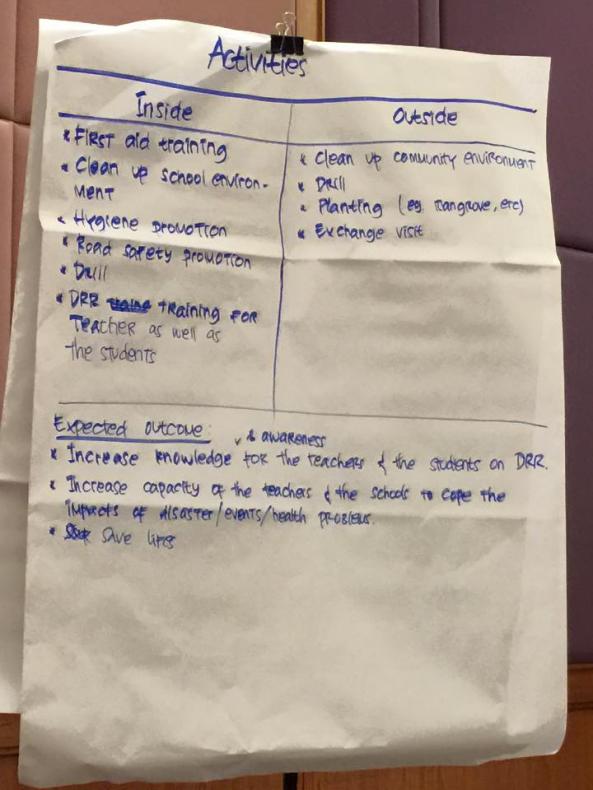 Activities
Inside
* First aid training
* Clean up school environ-
ment
* Hygiene promotion
* Road safety promotion
* Drill
* DRR training for
Teacher as well as
the students
Outside
* Clean up community environment
* Drill
* Planting (eg. mangrove, etc)
* Exchange visit
Expected outcome:
& awareness
* Increase knowledge for the teachers & the students on DRR.
* Increase capacity of the teachers & the schools to cope the
impacts of disaster/events/health problems.
* Save lifes